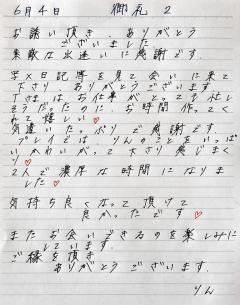 6月4日 御礼 2
お誘い頂き、ありがとう
ございました
素敵な出逢いに感謝です。
写メ日記等を見て会いに来て
下さり、ありがとうございます
下さまはお仕事がとってう忙し
そうだったのに、お時間作ってく
れて嬉しい♡
気遣いたっぷりで感謝です。
プレイでは りんのことをいっぱ
いかわいがって下さり感じまく
り♡
2人で濃厚な時間になりま
した♡
気持ち良くなって頂けて
良かったです♡
またお会いできるのを楽しみに
しています。
ご縁を頂き
ありがとうございます。
りん